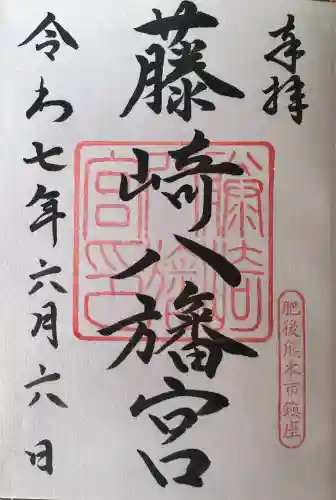 奉拝
藤崎八旛宮
令和七年六月六日
肥後熊本市鎮座